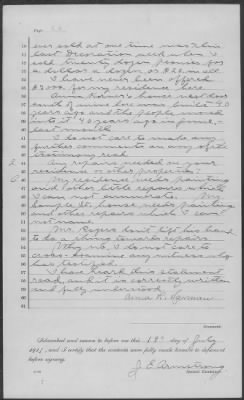 Page 26
ever sold at one time was this
last Decoration week when I
sold twenty dozen peonies for
a dollar a dozen or $20. in all.
I have never been offered
$2000. for my residence here.
Anna Kerner's house next door
south of mine here was built 40
years ago and the people used
it 40 years ago in June
last month.
I do not care to make any
further comments on any of the
testimony read.
Q Any repairs needed on your
residence or other properties?
A My residence needs painting
and other little repairs which
I can not enumerate. My
Semple St. house needs painting
and other repairs which I can
not name.
Mr. Rogers don't lift his hand
to do a thing towards repairs.
Why no, I do not care to
cross-examine any witness who
has testified.
I have heard this statement
read, and it is correctly written
and fully understood.
Anna R.
Deponent.
Subscribed and sworn to before me this 13th day of July,
1917, and I certify that the contents were fully made known to deponent
before signing.
J. E. Armstrong
Special Examiner.